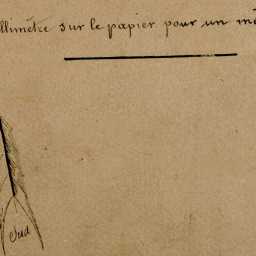 llimètre sur le papier pour un mè
Sud